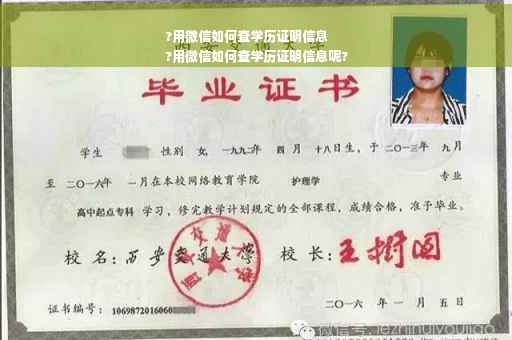 ?用微信如何查学历证明信息
?用微信如何查学历证明信息呢?
毕业证书
学生 性别 女, 一九九二年 四 月 十八日生, 于 二〇一三年 九 月
至 二〇一六年 一月在本校网络教育学院 护理学 专业
高中起点专科 学习, 修完教学计划规定的全部课程, 成绩合格, 准予毕业。
校 名: 西安交通大学 校 长: 王树国
证书编号: 1069872016060
二〇一六 年 一 月 五 日
微信号: lezhihuiyoujiao